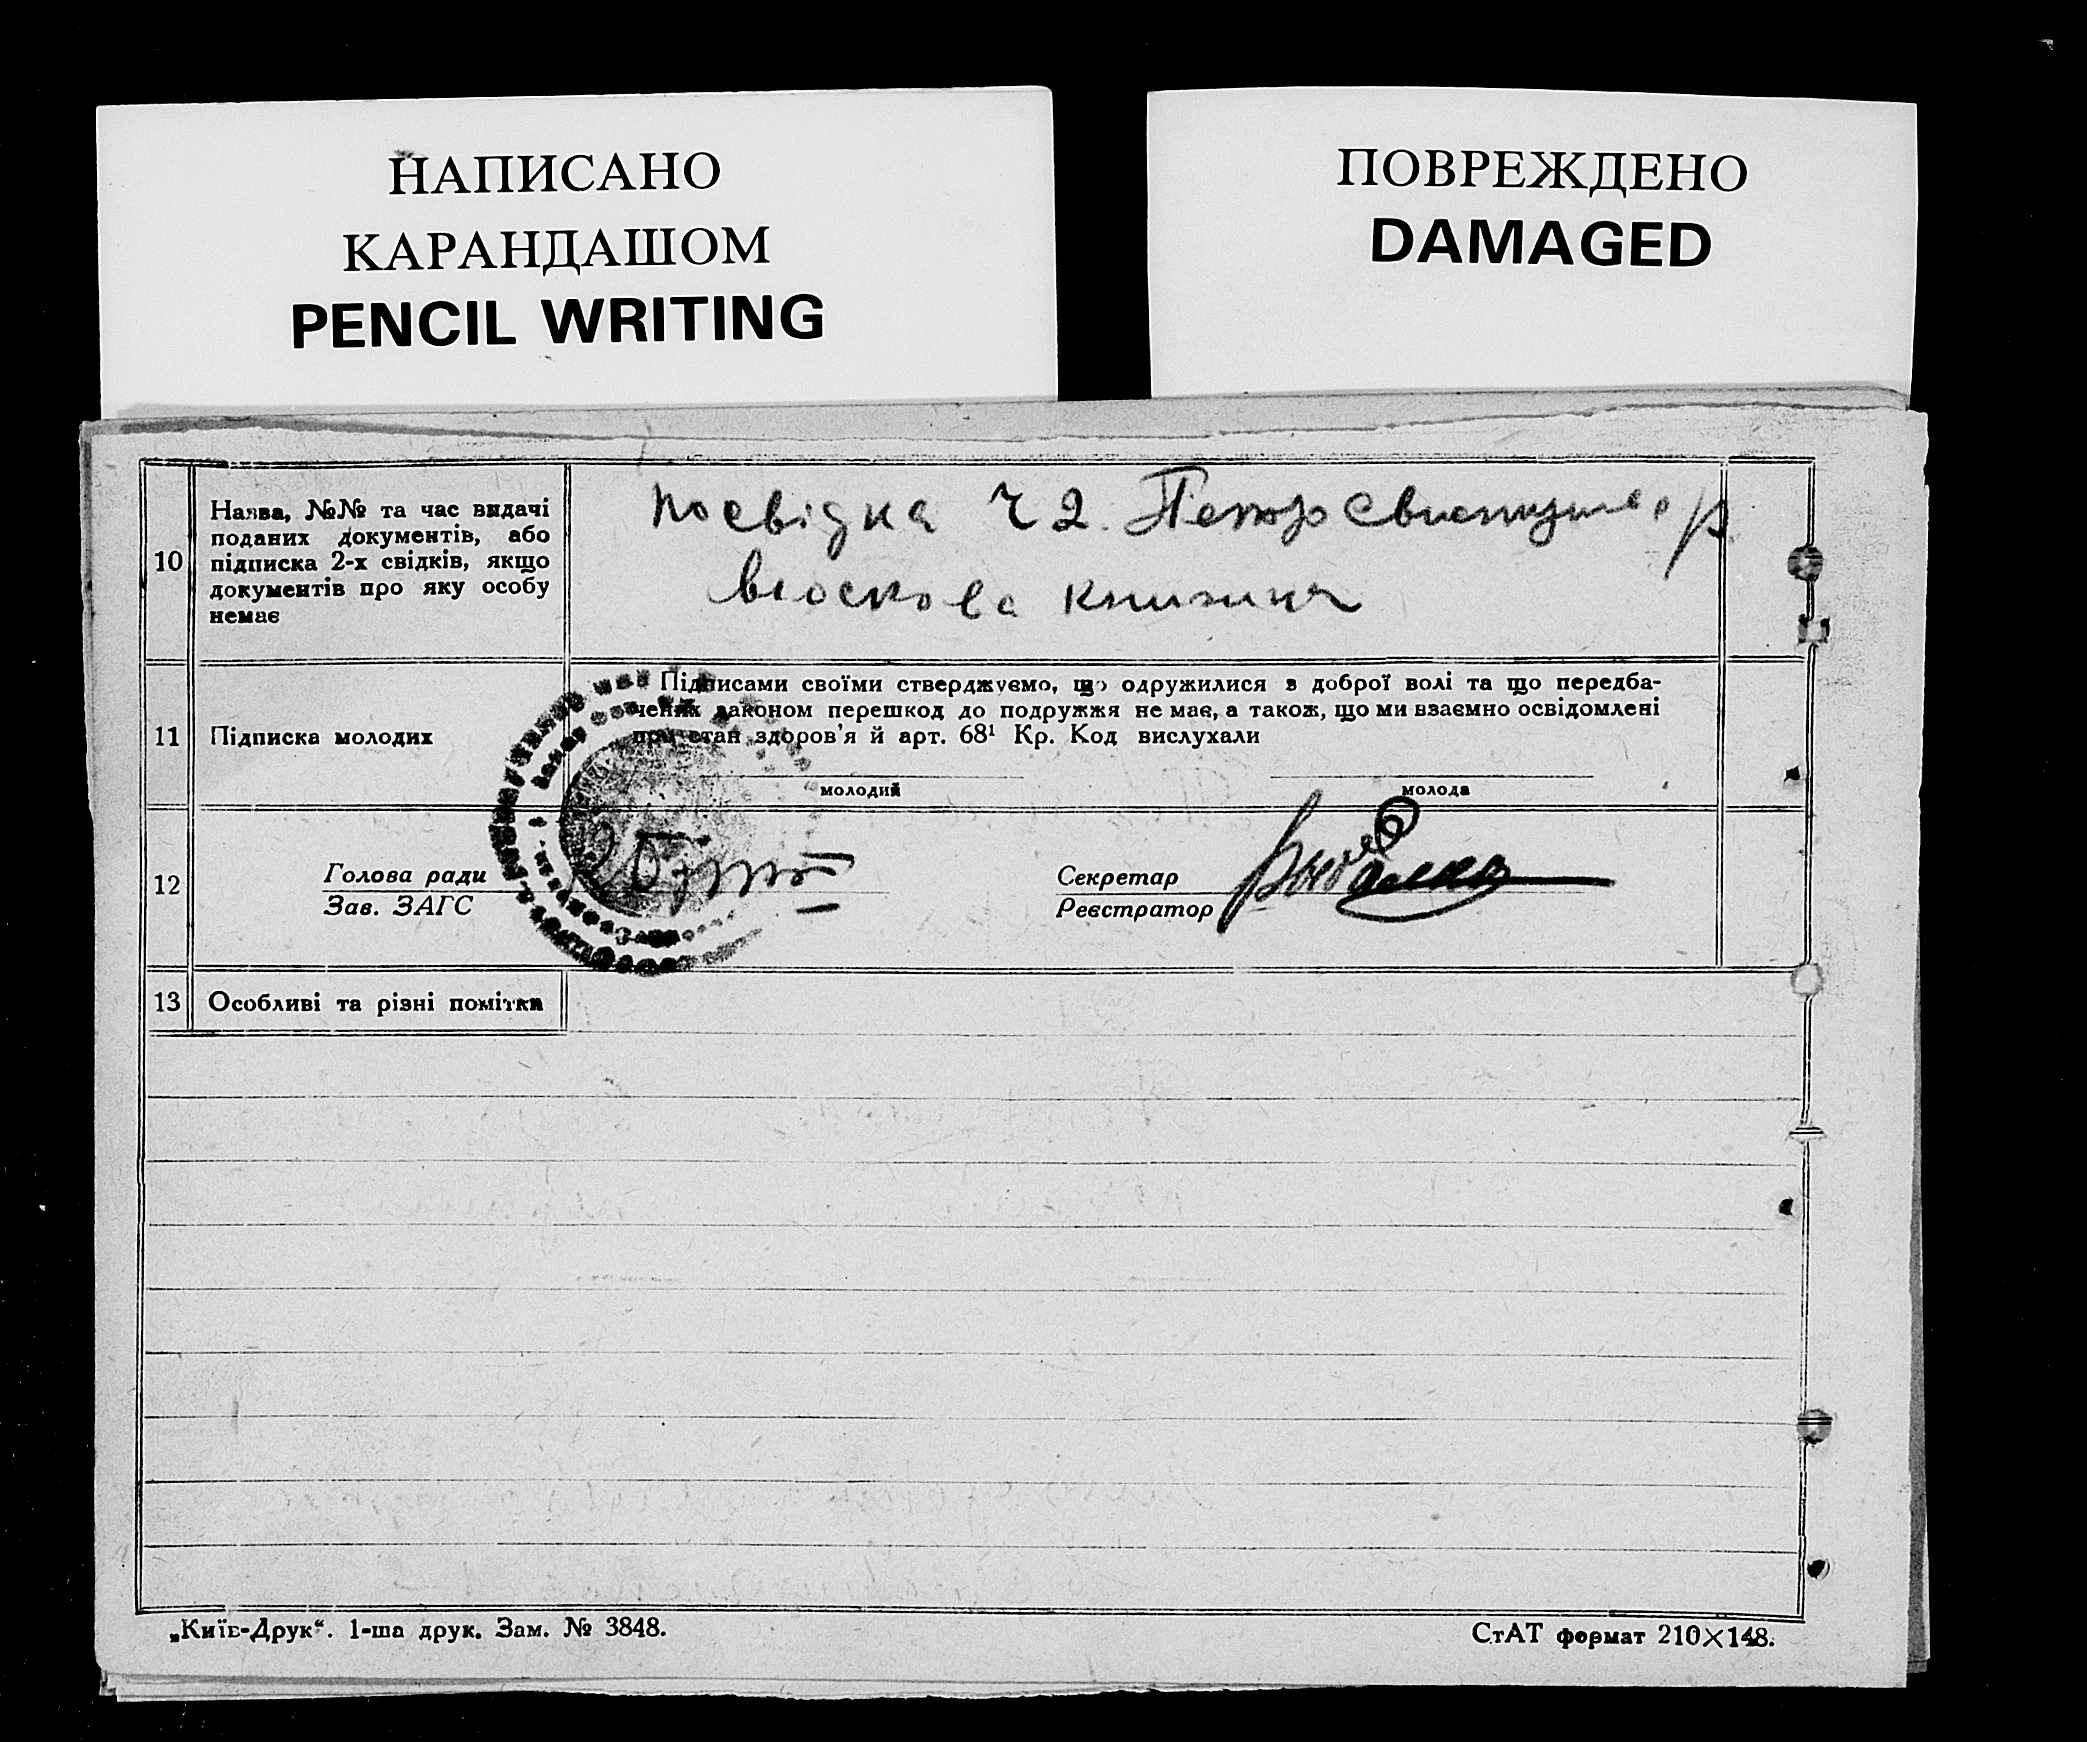 НАПИСАНО
КАРАНДАШОМ
PENCIL WRITING
ПОВРЕЖДЕНО
DAMAGED
10
Назва, №№ та час видачі
поданих документів, або
підписка 2-х свідків, якщо
документів про яку особу
немає
посвідка Ч 2. Петро
книжка
11
Підписка молодих
Підписами своїми стверджуємо, що одружилися з доброї волі та що передба-
чених законом перешкод до подружжя не має, а також, що ми взаємно освідомлені
про стан здоров'я й арт. 68¹ Кр. Код вислухали
молодий
молода
12
Голова ради
Зав. ЗАГС
Секретар
Реєстратор
13
Особливі та різні помітки
„Київ-Друк“. 1-ша друк. Зам. № 3848.
СтАТ формат 210×148.